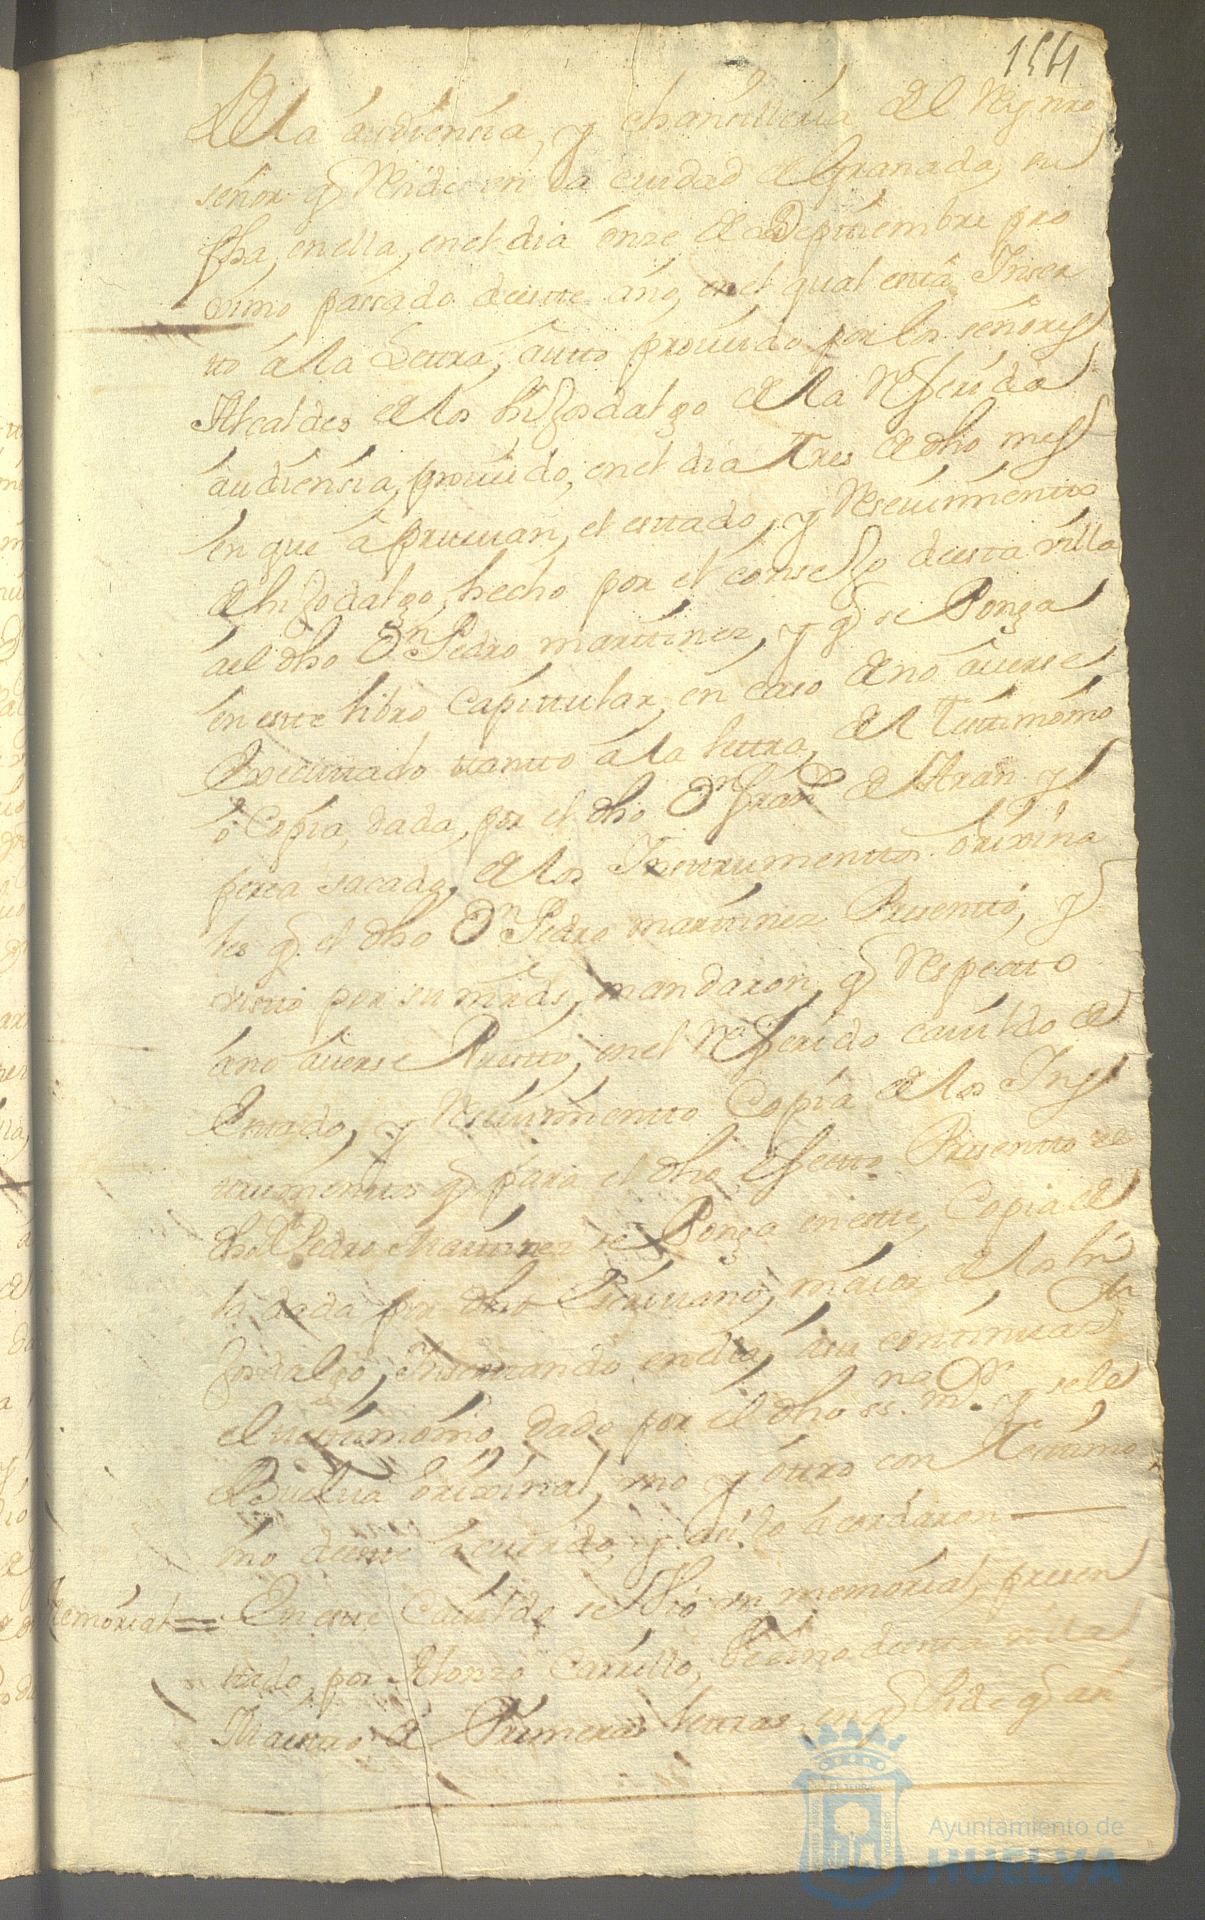 154
de la audiensia, y chansilleria del Rey nro
señor q Reside en la ciudad de Granada, su
fha, en ella, en el dia onze de Septtiembre pro
ximo passado de estte año, en el qual está Inser
tto â la Lettra, autto proueido por los señores
Alcaldes de los hijosdalgo de la Referida
audiensia, proueido, en el dia Tres de dho mes
en que âprueuan, el esttado, y Reseuimientto
de hijodalgo, hecho por el consejo de esta villa
ael dho Dn Pedro marttinez, y q se Ponga
en estte libro Capittular, en caso de no auerse
Executtado ttantto a la lettra, del Testtimonio
o Copia, dada, por el dho Dn Franco de Aran y
perea sacado, de los Insttrumenttos orixina
les q el dho Dn Pedro marttinez Presenttó, y
vistto por su mrds, mandaron, q Respectto
ano auerse Puestto, en el Referido cauildo de
Esttado, y Reseuimientto Copia de los Ins
ttrumenttos q para el dho efectto Presentto el
dho Dn Pedro Marttinez se Ponga en estte, Copia de
la dada por dho Escriuano, maior de los hi
josdalgo, Insertando en ella, a su continuasn
el testtimonio dado por el dho ssno mor y se le
Debuelua orixinal, uno y ottro con Testtimo
nio de estte acuerdo, y asi lo acordaron
Memorial = En estte Cauildo se Vió un memorial, presen
ttado por Alonzo Carrillo, Vesino de esta villa
Maesttro de Primeras lettras, en q Pide q an
Ayuntamiento de
HUELVA